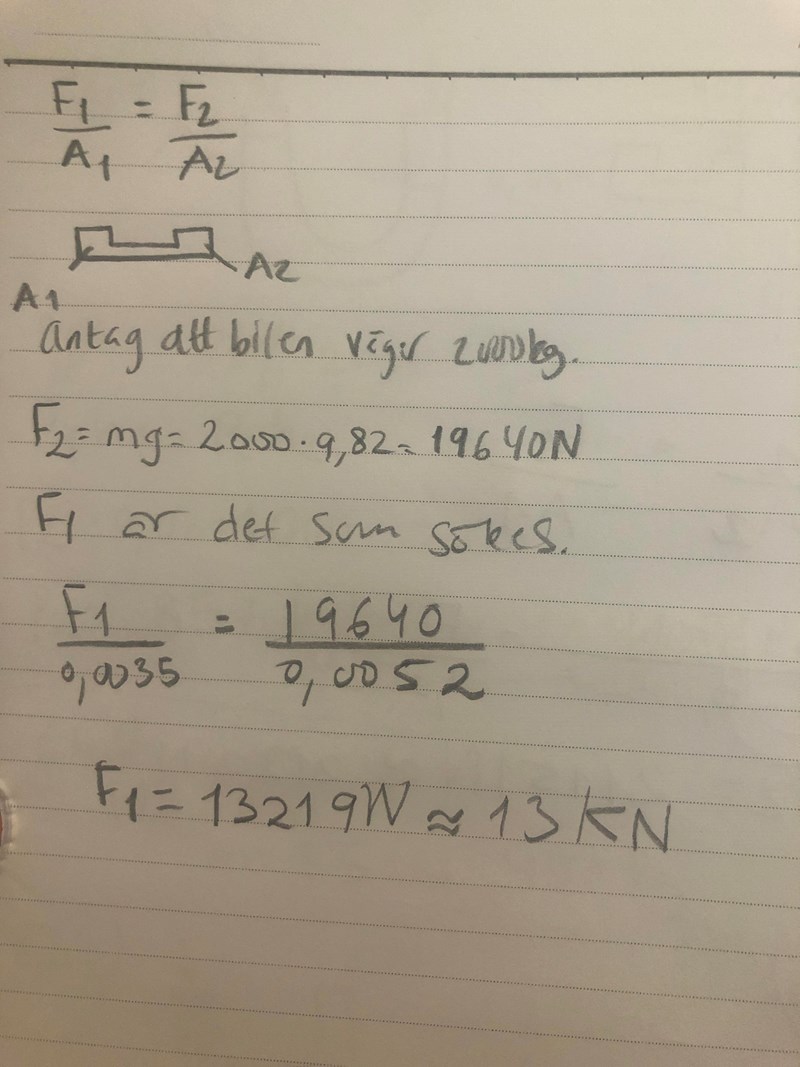 F1/A1 = F2/A2
A2
A1
Antag att bilen väger 2000kg.
F2 = mg = 2000 · 9,82 = 19640N
F1 är det som sökes.
F1/0,0035 = 19640/0,0052
F1 = 13219N ≈ 13 KN